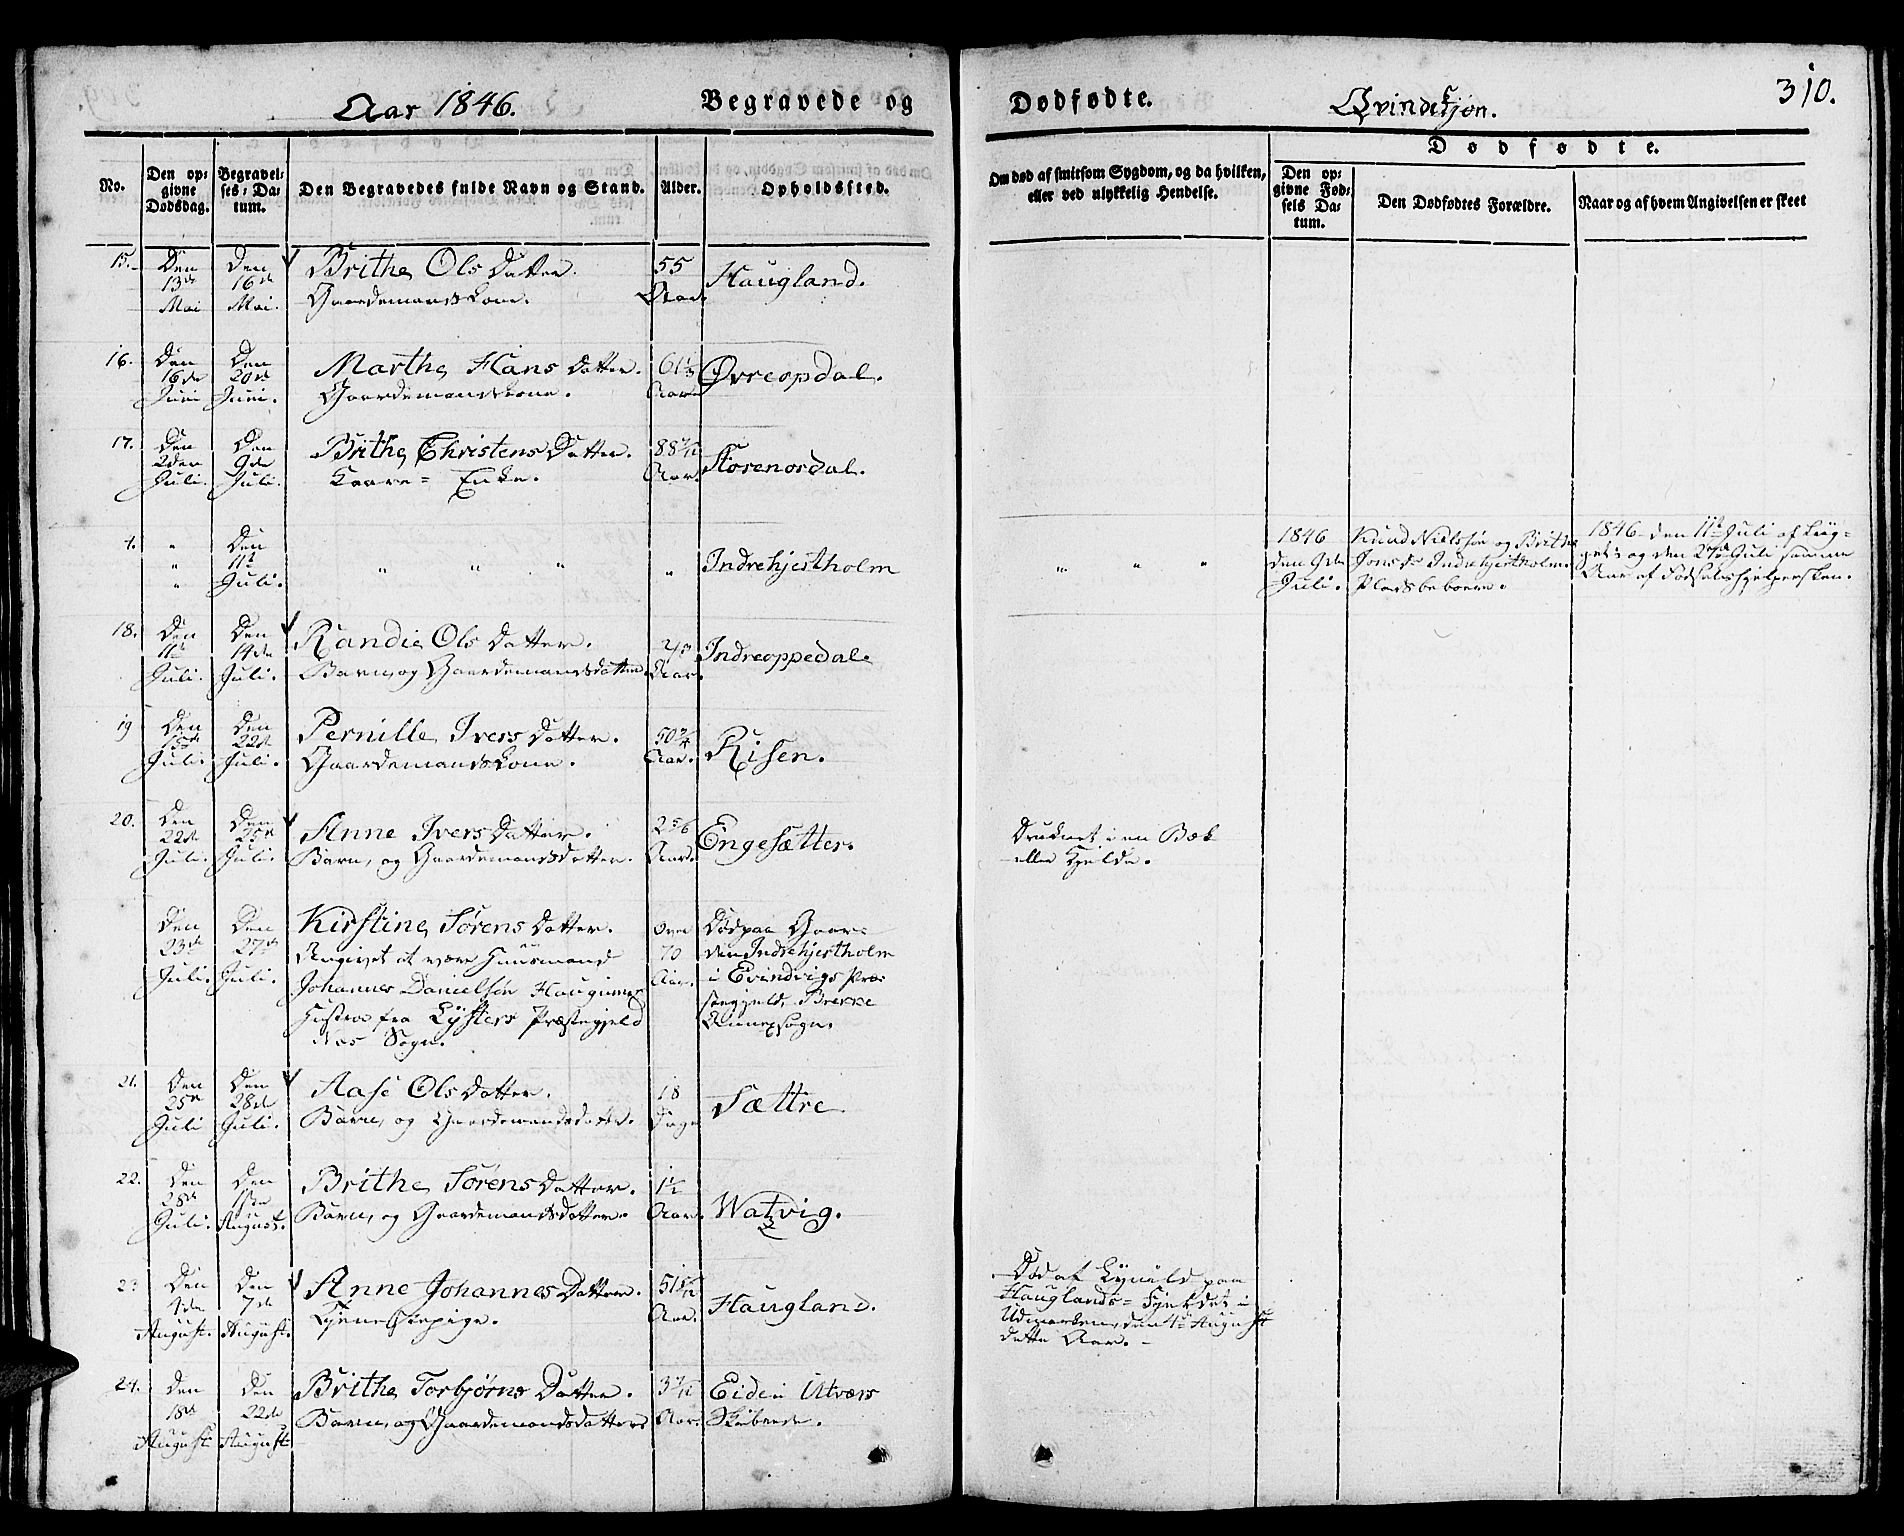 Aar 1846.
Begravede og
Dødfødte.
Qvindekjøn.
310.
No.
Den op-
givne
Dødsdag.
Begravel-
ses-Da-
tum.
Den Begravedes fulde Navn og Stand.
Alder.
Opholdssted.
Om død af smitsom Sygdom, og da hvilken,
eller ved ulykkelig Hendelse.
Dødfødte.
Den op-
givne Fød-
sels Da-
tum.
Den Dødfødtes Forældre.
Naar og af hvem Angivelsen er skeet
15. Den 13de Mai
Den 16de Mai.
Brithe Ols Datter.
Gaardemandskone.
55
Aar.
Haugland.
16. Den 16de Juni
Den 20de Juni.
Marthe Hans Datter.
Gaardemandskone.
Aar
Øvreopdal.
17. Den 2den Juli.
Den 9de Juli.
Brithe Christens Datter.
Kaare- Enke.
88
Aar.
Storenordal.
4. " " "
Den 11te Juli.
" " "
"
Indrehjestholm
" " "
1846
den 9de
Juli.
Knud Nielssøn og Brithe
Jonsdr Indrehjestholm.
Pladsbeboere.
1846 den 11te Juli af
og den 27de Juli samme
Aar af Fødselshjelpersken.
18. Den 11te Juli.
Den 14de Juli.
Randi Ols Datter.
Barn, og Gaardemandsdatter.
Aar.
Indreoppedal
19 Den 15de Juli.
Den 22de Juli.
Pernille Ivers Datter.
Gaardemandskone.
50 3/4
Aar.
Risen.
20. Den 22de Juli.
Den 25de Juli.
Anne Ivers Datter.
Barn, og Gaardemandsdatter.
2 5/6
Aar.
Engesætter.
Druknet i en Bæk
eller Kjelde.
Den 23de Juli.
Den 27de Juli.
Kirstine Sørens Datter.
Angivet at være Huusmand
Johannes Danielsøn
Hustroe fra Lysters Præstegjeld
Nes Sogn.
over
70
Aar.
Død paa Gaar-
den Indrehjestholm
i Evindvigs Præ-
stegjeld, Brekke
Annexsogn.
21. Den 25de Juli
Den 28de Juli.
Aase Ols Datter.
Barn, og Gaardemandsdatter.
18
Dage
Sættre
22. Den 28de Juli.
Den 1ste August.
Brithe Sørens Datter.
Barn, og Gaardemandsdatter.
Aar.
Watvig.
23 Den 1ste August.
Den 7de August.
Anne Johannes Datter.
Tjenestepige.
51
Aar.
Haugland.
Død af Lynild paa
Hauglands- Fjeldet i
Udmarken, den 1ste August
dette Aar. -
24. Den 18de August
Den 22de August
Brithe Torbjørns Datter.
Barn, og Gaardemandsdatter
3
Aar.
Eide i Utværs
Skibrede.